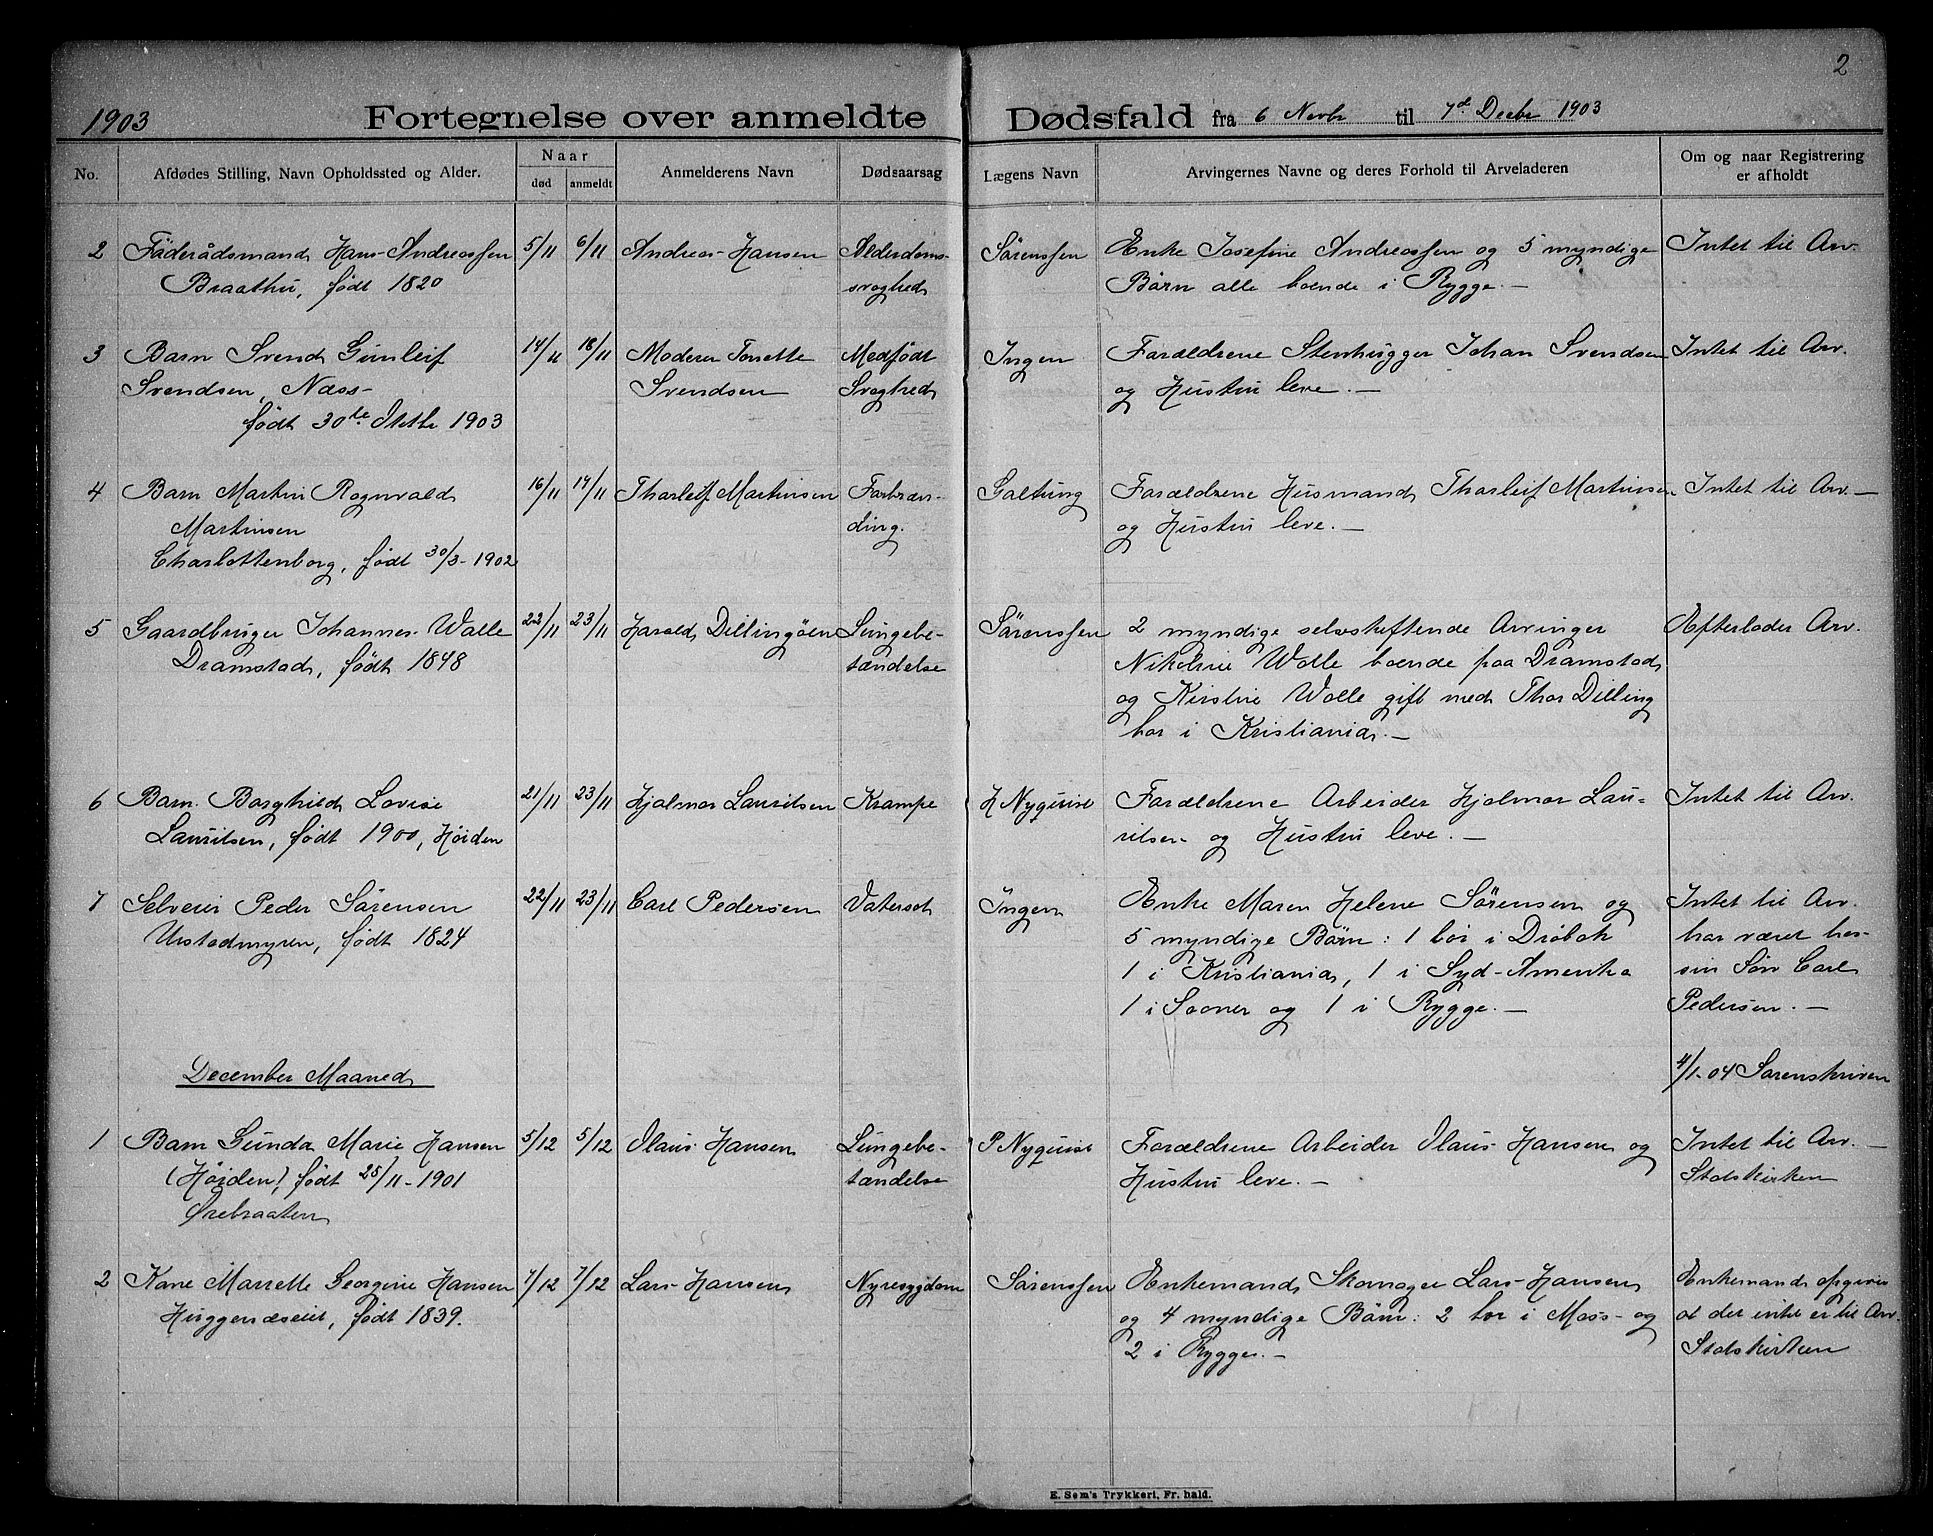 2
1903 Fortegnelse over anmeldte Dødsfald fra 6 Novbr til 7de Decbr 1903
No. Afdødes Stilling, Navn Opholdssted og Alder. Naar død anmeldt Anmelderens Navn Dødsaarsag Lægens Navn Arvingernes Navne og deres Forhold til Arveladeren Om og naar Registrering er afholdt
2 Föderådsmand Hans Andreassen 5/11 6/11 Andreas Hansen Alderdoms- Sörenssen Enke Josefine Andreassen og 5 myndige Intet til Arv.
Braathu, født 1820 svaghed Børn alle boende i Rygge.—
3 Barn Svend Gunleif 14/11 18/11 Moderen Tonette Medfødt Ingen Forældrene Stenhugger Johan Svendsen Intet til Arv.
Svendsen, Næss Svendsen Svaghed og Hustru leve.—
født 30te Oktbr 1903
4 Barn Martin Rognvald 16/11 19/11 Tharleif Martinsen Forbræn- Galtung Forældrene Husmand Tharleif Martinsen Intet til Arv.—
Martinsen ding. og Hustru leve.—
Charlottenborg, født 30/3-1902
5 Gaardbruger Johannes Walle 22/11 23/11 Harald Dillingöen Lungebe- Sörenssen 2 myndige selvskiftende Arvinger Efterlader Arv.
Dramstad, født 1848 tændelse Nikoline Walle boende paa Dramstad
og Kirstine Walle gift med Thor Dilling
bor i Kristiania.—
6 Barn Borghild Lovise 21/11 23/11 Hjalmar Lauritsen Krampe H Nyquist Forældrene Arbeider Hjalmar Lau- Intet til Arv.
Lauritsen, født 1900, Høiden ritsen og Hustru leve.—
7 Selveier Peder Sörensen 22/11 23/11 Carl Pedersen Vatersot Ingen Enke Maren Helene Sörensen og Intet til Arv.
Urstadmyren, født 1824 5 myndige Børn: 1 bor i Dröbak har været hos
1 i Kristiania, 1 i Syd-Amerika sin Søn Carl
1 i Sooner og 1 i Rygge.— Pedersen.—
December Maaned 4/1-04 Sorenskriveren
1 Barn Gunda Marie Hansen 5/12 5/12 Olaus Hansen Lungebe- P Nyquist Forældrene Arbeider Olaus Hansen og Intet til Arv.—
(Høiden), født 25/11-1901 tændelse Hustru leve.— Stadskirken
Ørebraaten
2 Kone Marrette Georgine Hansen 7/12 7/12 Lars Hansen Nyresygdom Sörenssen Enkemand Skomager Lars Hansen Enkemand opgiver
Huggenæseiet, født 1839. og 4 myndige Børn: 2 bor i Moss og at der intet er til Arv.
2 i Rygge.— Stadskirken
E. Sem's Trykkeri, Fr. hald.